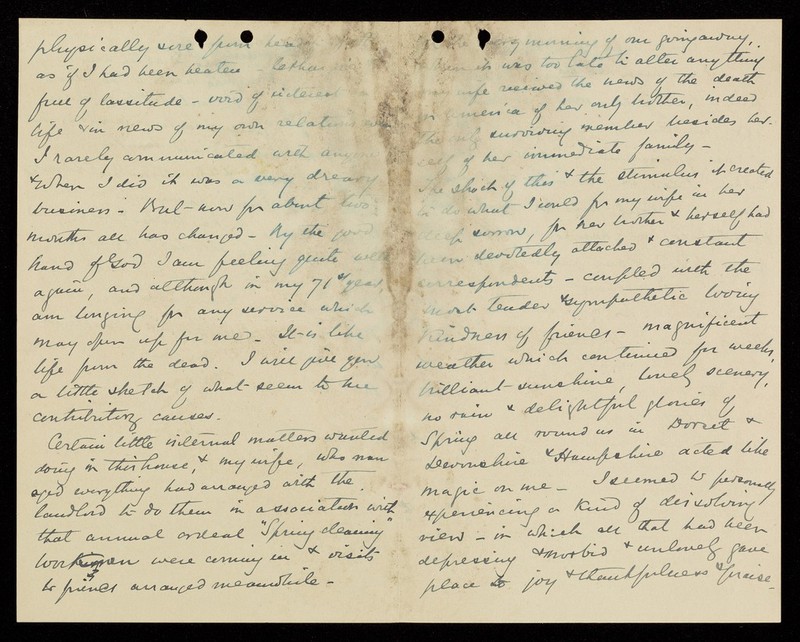 physically sore from head
as if I had been beaten - lethar
full of lassitude - void of interest
life & in news of my own relations
I rarely communicated with any
& when I did it was a very dreary
business - But - now for about two
months all has changed - By the good
hand of God I am feeling quite well
again, and although in my 71st year,
am longing for any service which
may open up for me - It is like
life from the dead. I will give you
a little sketch of what seem to me
contributory causes.
Certain little internal matters wanted
doing in this house, & my wife, who man
aged everything had arranged with the
landlord to do them in association with
that annual ordeal "Spring cleaning"
Workmen were coming in & visits
to friends arranged meanwhile -
very morning of our going away,
it was too late to alter anything
my wife received the news of the death
in America of her only brother, indeed
the only surviving member besides her-
self of her immediate family -
The shock of this & the stimulus it created
to do what I could for my wife in her
deep sorrow, for her brother & herself had
been devotedly attached & constant
correspondents - coupled with the
most tender & sympathetic loving
kindness of friends - magnificent
weather which continued for weeks,
brilliant sunshine, lovely scenery,
no rain & delightful glories of
Spring all round us in Dorset &
Devonshire & Hampshire acted like
magic on me - I seemed to personally
experiencing a kind of dissolving
view - in which all that had been
depressing & morbid & unlovely gave
place to joy & thankfulness & praise -